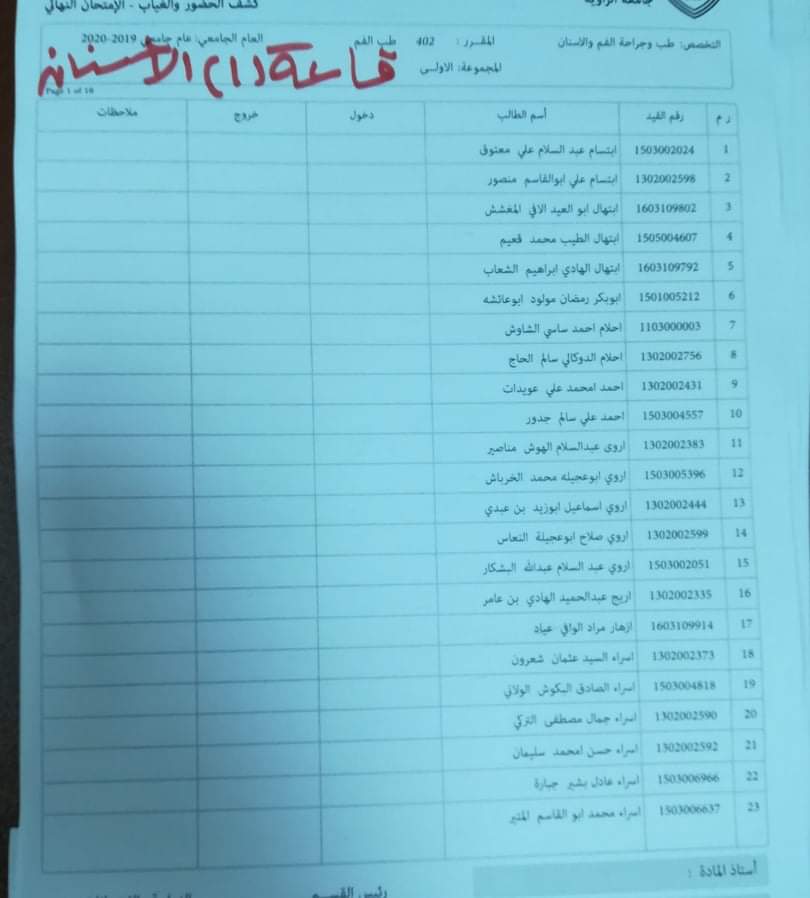 كشف الحضور والغياب - الإمتحان النهائي
جامعة الزاوية
التخصص: طب وجراحة الفم والاسنان المقرر: 402 طب الفم العام الجامعي: عام جامعي 2019-2020
المجموعة: الاولى
قاعة (1) الأسنان
Page 1 of 10
ر م رقم القيد أسم الطالب دخول خروج ملاحظات
1 1503002024 ابتسام عبد السلام علي معتوق
2 1302002598 ابتسام علي ابوالقاسم منصور
3 1603109802 ابتهال ابو العيد الافي المغشش
4 1505004607 ابتهال الطيب محمد قعيم
5 1603109792 ابتهال الهادي ابراهيم الشعاب
6 1501005212 ابوبكر رمضان مولود ابوعائشه
7 1103000003 احلام احمد ساسي الشاوش
8 1302002756 احلام الدوكالي سالم الحاج
9 1302002431 احمد امحمد علي عويدات
10 1503004557 احمد علي سالم جدور
11 1302002383 اروى عبدالسلام الهوش مناصير
12 1503005396 اروي ابوعجيله محمد الخرباش
13 1302002444 اروي اسماعيل ابوزيد بن عبدي
14 1302002599 اروي صلاح ابوعجيلة النعاس
15 1503002051 اروي عبد السلام عبدالله البشكار
16 1302002335 اريج عبدالحميد الهادي بن عامر
17 1603109914 ازهار مراد الوافي عياد
18 1302002373 اسراء السيد عثمان شعرون
19 1503004818 اسراء الصادق البكوش الولاني
20 1302002590 اسراء جمال مصطفى التركي
21 1302002592 اسراء حسن امحمد سليمان
22 1503006966 اسراء عادل بشير جبارة
23 1503006637 اسراء محمد ابو القاسم المنير
أستاذ المادة :
رئيس القسم